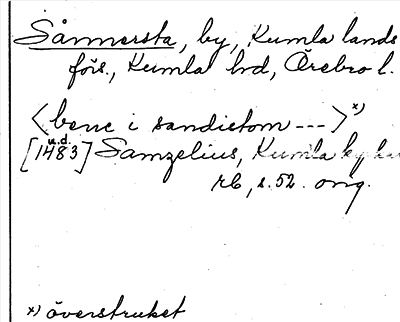 Sånnersta, by, Kumla lands
förs., Kumla hd, Örebro l.
<bene i sandistom ---> x)
u.d.
[1483] Samzelius, Kumla kyrkas
rb, s. 52. orig.
x) överstruket